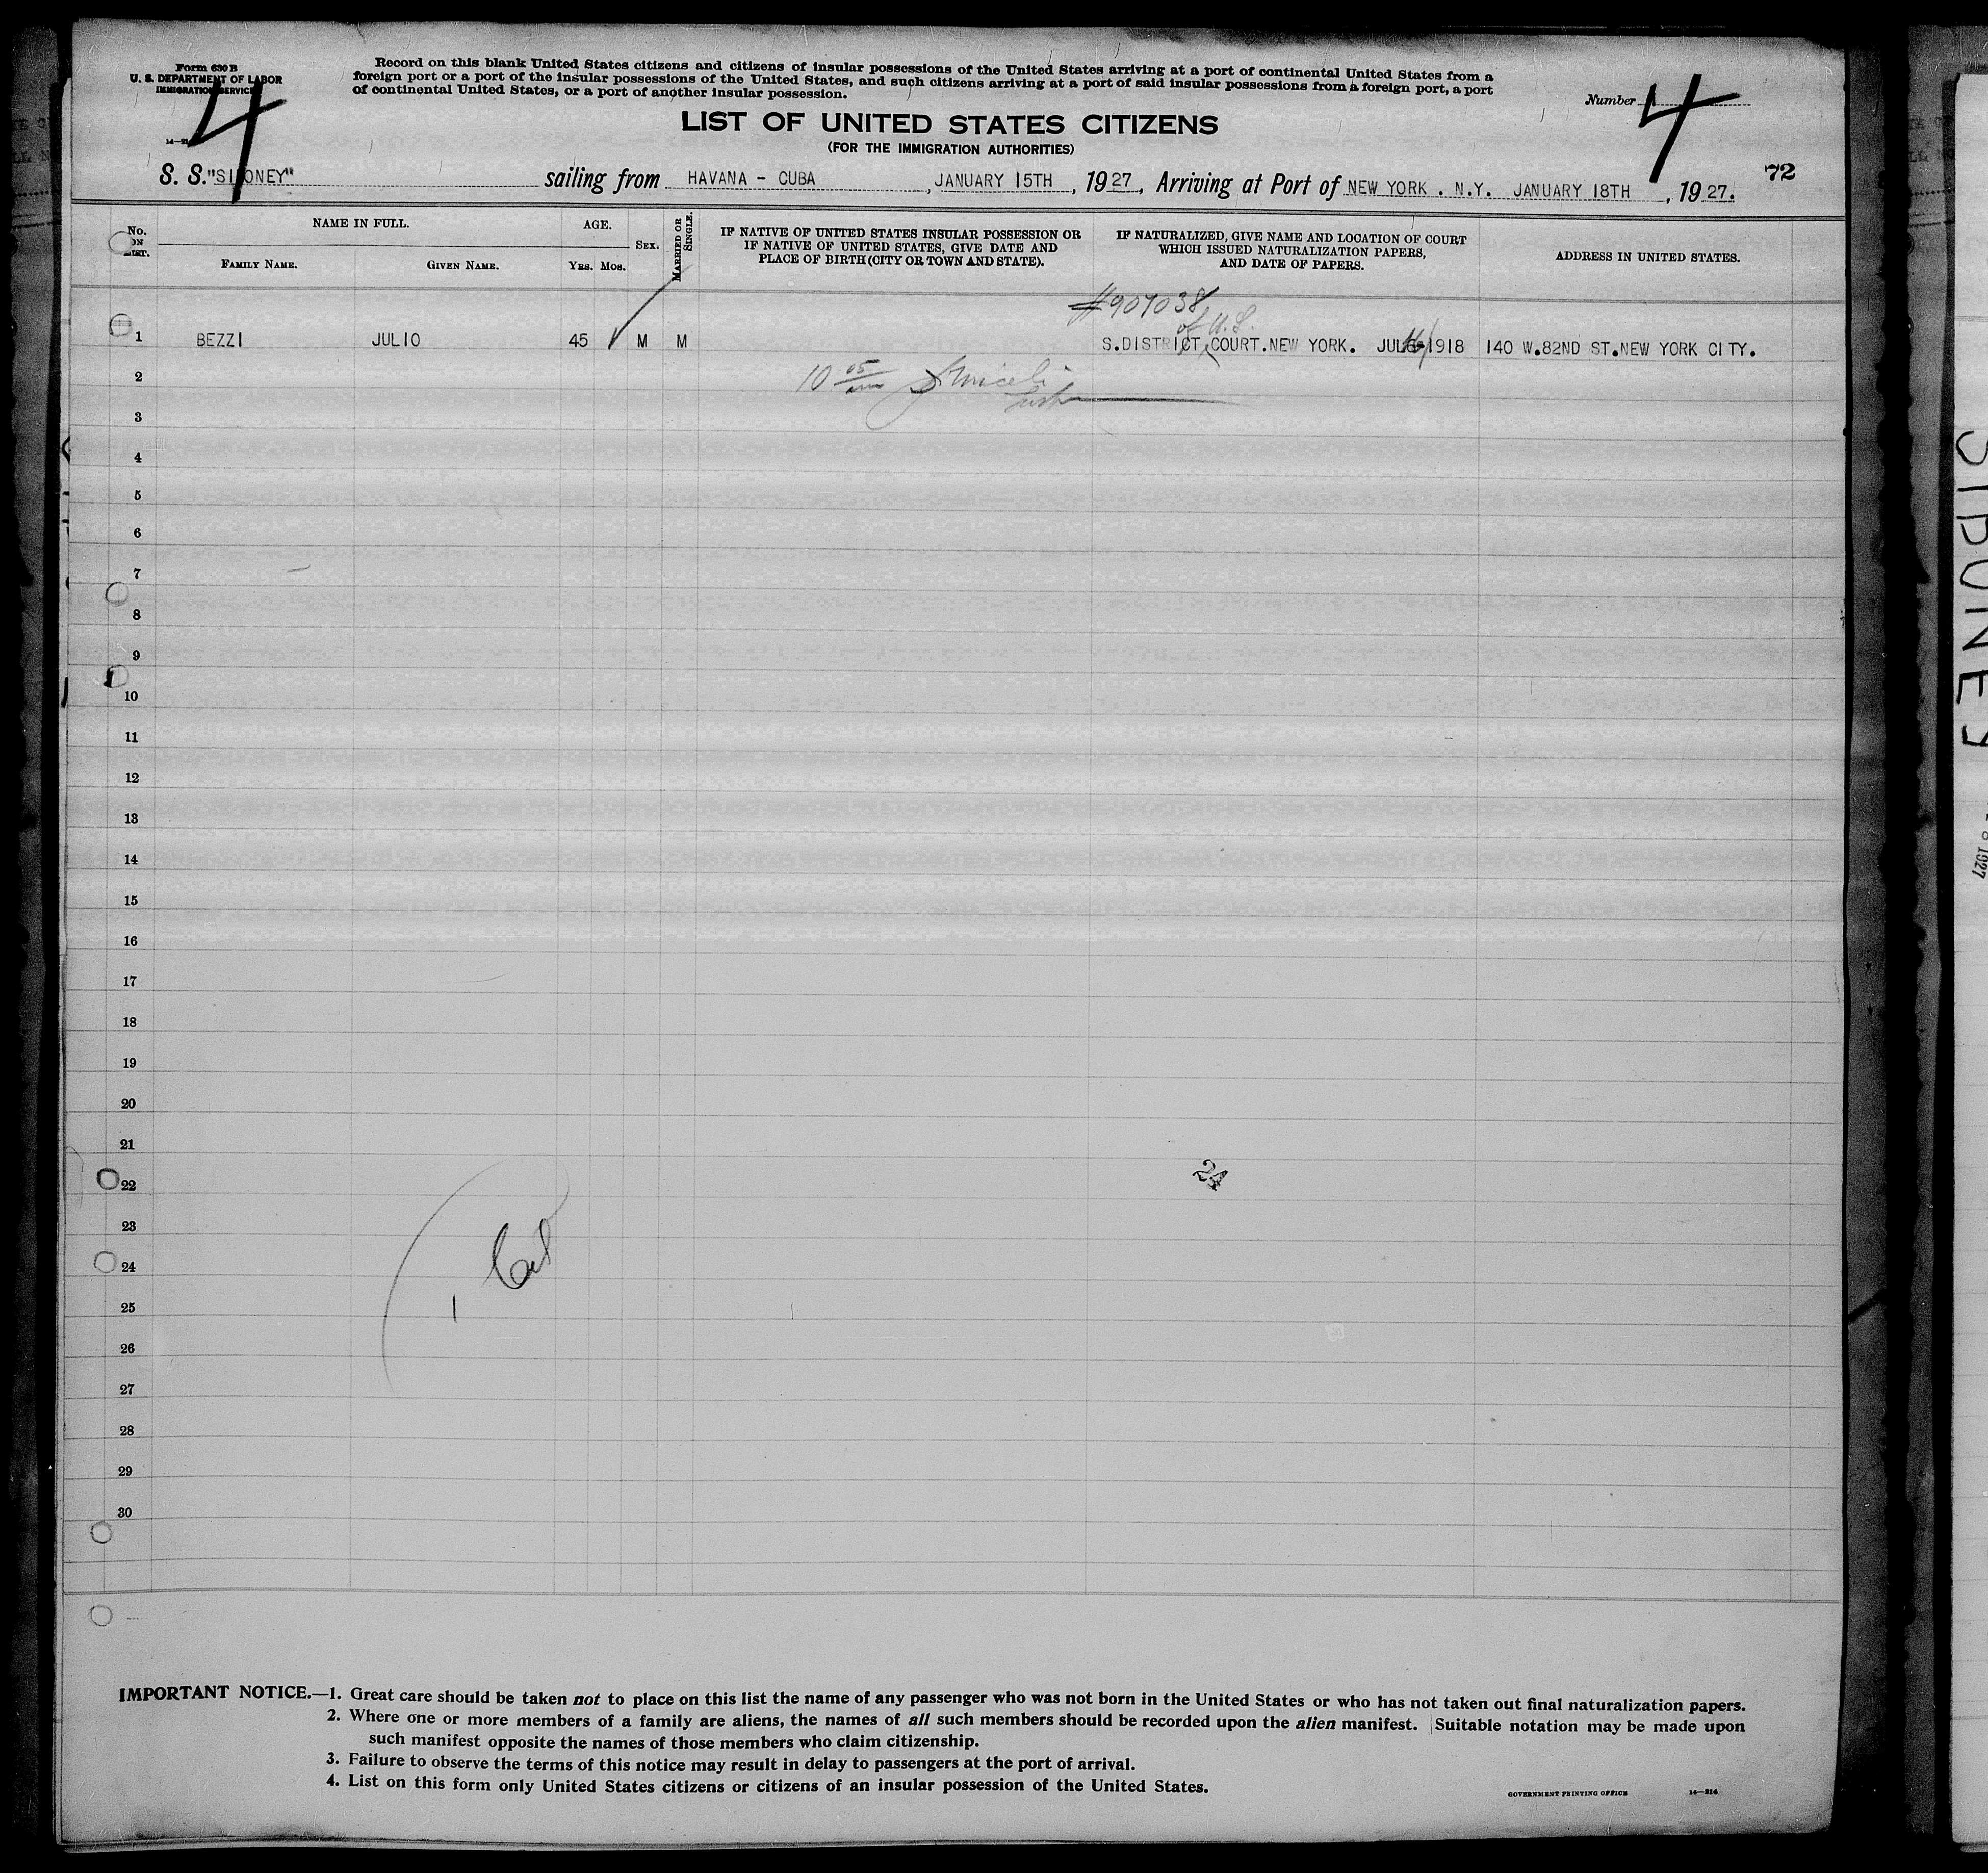 Form 630 B
U. S. DEPARTMENT OF LABOR
IMMIGRATION SERVICE
4
Record on this blank United States citizens and citizens of insular possessions of the United States arriving at a port of continental United States from a
foreign port or a port of the insular possessions of the United States, and such citizens arriving at a port of said insular possessions from a foreign port, a port
of continental United States, or a port of another insular possession.
Number 4
LIST OF UNITED STATES CITIZENS
(FOR THE IMMIGRATION AUTHORITIES)
72
S. S. "SIBONEY" sailing from HAVANA - CUBA, JANUARY 15TH, 1927, Arriving at Port of NEW YORK . N.Y. JANUARY 18TH, 1927.
No. ON LIST.
NAME IN FULL.
FAMILY NAME.
GIVEN NAME.
AGE.
YRS. MOS.
SEX.
MARRIED OR SINGLE.
IF NATIVE OF UNITED STATES INSULAR POSSESSION OR
IF NATIVE OF UNITED STATES, GIVE DATE AND
PLACE OF BIRTH (CITY OR TOWN AND STATE).
IF NATURALIZED, GIVE NAME AND LOCATION OF COURT
WHICH ISSUED NATURALIZATION PAPERS,
AND DATE OF PAPERS.
ADDRESS IN UNITED STATES.
#907038
of U.S.
1 BEZZI JULIO 45 M M S.DISTRICT COURT.NEW YORK. JUL 1918 140 W.82ND ST.NEW YORK CITY.
10 05
2
3
4
5
6
7
8
9
10
11
12
13
14
15
16
17
18
19
20
21
24
22
23
24
25
26
27
28
29
30
IMPORTANT NOTICE.—1. Great care should be taken not to place on this list the name of any passenger who was not born in the United States or who has not taken out final naturalization papers.
2. Where one or more members of a family are aliens, the names of all such members should be recorded upon the alien manifest. Suitable notation may be made upon
such manifest opposite the names of those members who claim citizenship.
3. Failure to observe the terms of this notice may result in delay to passengers at the port of arrival.
4. List on this form only United States citizens or citizens of an insular possession of the United States.
GOVERNMENT PRINTING OFFICE 14—214
SIBONEY
1927